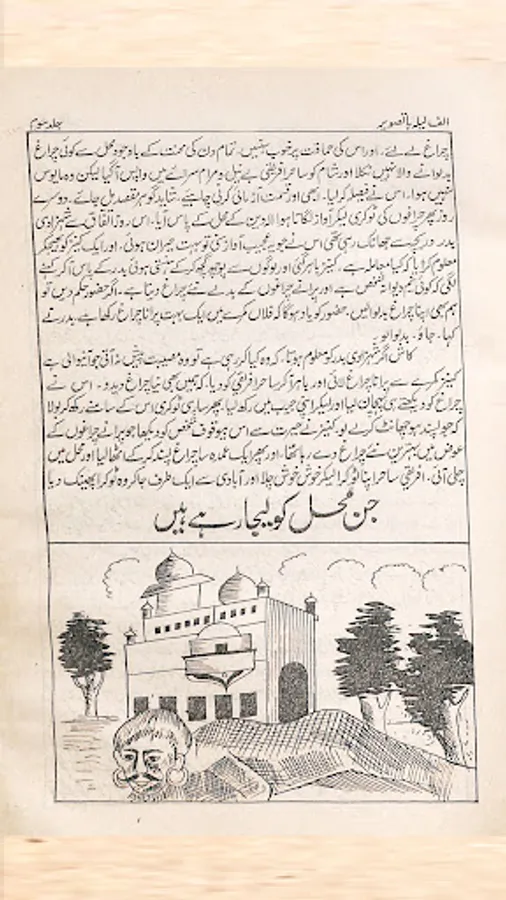 الف لیلہ باتصویر
جلد سوم
چراغ لے لیے۔ اور اس کی حماقت پر خوب ہنسیں۔ تمام دن کی محنت کے باوجود محل سے کوئی چراغ
بدلوانے والا نہیں نکلا اور شام کو ساحر افریقی بے نیل و مرام سرائے میں واپس آگیا لیکن وہ مایوس
نہیں ہوا۔ اس نے فیصلہ کر لیا۔ ابھی اور قسمت آزمائی کرنی چاہیئے، شاید گوہر مقصد مل جائے۔ دوسرے
روز پھر چراغوں کی ٹوکری لیکر آواز لگاتا ہوا الادین کے محل کے پاس آیا۔ اس روز اتفاق سے شہزادی
بدر در یچہ سے جھانک رہی تھی اس نے جو یہ عجیب آواز سنی تو بہت حیران ہوئی۔ اور ایک کنیز کو بھیجکر
معلوم کرایا کہ کیا معاملہ ہے۔ کنیز باہر گئی اور لوگوں سے پوچھ گچھ کر کے ہنستی ہوئی بدر کے پاس آکر کہنے
لگی کہ کوئی نیم دیوانہ شخص ہے اور پرانے چراغوں کے بدلے نئے چراغ دیتا ہے۔ اگر حضور حکم دیں تو
ہم بھی اپنا چراغ بدلوالیں۔ حضور کو یاد ہوگا کہ فلاں کمرے میں ایک بہت پرانا چراغ رکھا ہے۔ بدر نے
کہا۔ جاؤ۔ بدلوا لو۔
کاش اگر شہزادی بدر کو معلوم ہوتا۔ کہ وہ کیا کر رہی ہے تو وہ مصیبت پیش نہ آتی جو آنیوالی ہے
کنیز کمرے سے پرانا چراغ لائی اور باہر آکر ساحر افریقی کو دیا۔ کہ ہمیں بھی نیا چراغ دیدو۔ اس نے
چراغ کو دیکھتے ہی پہچان لیا اور لیکر اپنی جیب میں رکھ لیا۔ پھر ساری ٹوکری اس کے سامنے رکھ کر بولا
کہ جو پسند ہو چھانٹ کر لے لو۔ کنیز نے حیرت سے اس بیوقوف شخص کو دیکھا جو پرانے چراغوں کے
عوض میں بہترین نئے چراغ دے رہا تھا۔ اور پھر ایک عمدہ سا چراغ پسند کر کے اٹھا لیا اور محل میں
چلی آئی۔ افریقی ساحر اپنا ٹوکرا لیکر خوش خوش چلا اور آبادی سے ایک طرف جا کر وہ ٹوکرا پھینک دیا
جن محل کو لیجا رہے ہیں